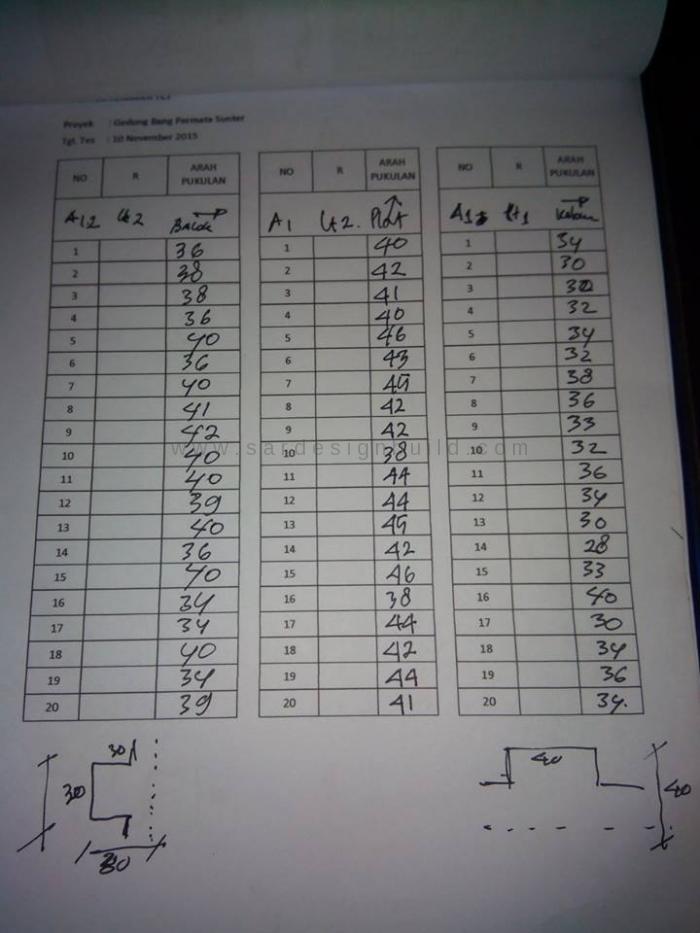 Proyek : Gedung Bang Permata Sunter
Tgl. Tes : 10 November 2015
NO R ARAH PUKULAN
A12 Lt 2 Balok
1 36
2 38
3 38
4 36
5 40
6 36
7 40
8 41
9 42
10 40
11 40
12 39
13 40
14 36
15 40
16 34
17 34
18 40
19 34
20 39
NO R ARAH PUKULAN
A1 Lt 2. Plat
1 40
2 42
3 41
4 40
5 46
6 43
7 45
8 42
9 42
10 38
11 44
12 44
13 45
14 42
15 46
16 38
17 44
18 42
19 44
20 41
NO R ARAH PUKULAN
Lt 1 Kolom
1 34
2 30
3 30
4 32
5 34
6 32
7 38
8 36
9 33
10 32
11 36
12 34
13 30
14 28
15 33
16 40
17 30
18 34
19 36
20 34.
www.sardesignbuild.com
30
30
30
40
40